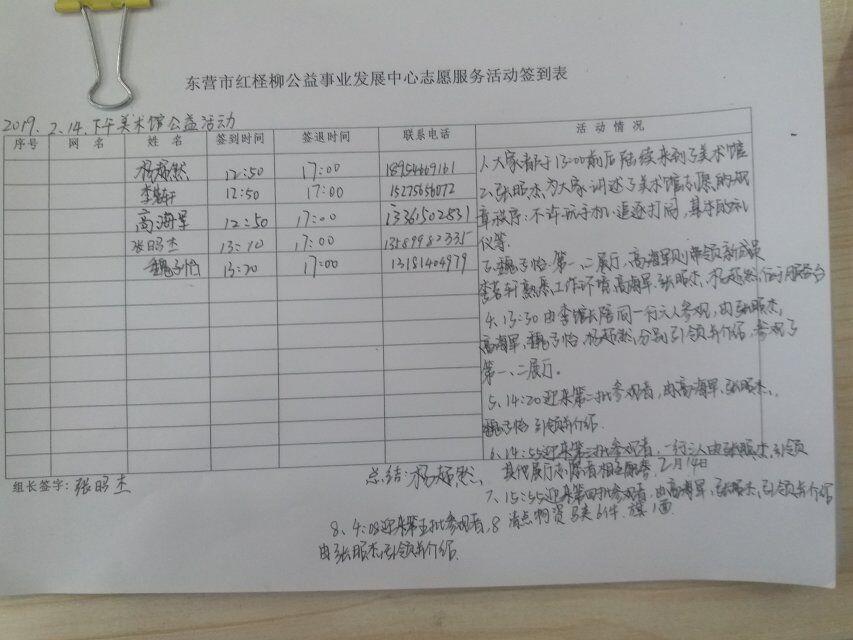 东营市红柽柳公益事业发展中心志愿服务活动签到表
2019.2.14.下午美术馆公益活动
序号 网名 姓名 签到时间 签退时间 联系电话 活动情况
杨超然 12:50 17:00 18954669161
李茗轩 12:50 17:00 15275656072
高海军 12:50 17:00 13361502531
张昭杰 13:10 17:00 13589982335
魏子怡 13:20 17:00 13181404979
1.大家都于13:00前后陆续来到了美术馆
2.张昭杰为大家讲述了美术馆志愿的规
章秩序:不许玩手机,追逐打闹,基本的礼
仪等.
3.魏子怡:第一、二展厅,高海军则带领新成员
李茗轩熟悉工作环境,高海军.张昭杰.杨超然,位于服务台
4.13:30由李馆长陪同一行六人参观,由张昭杰,
高海军,魏子怡,杨超然,分别引领并介绍,参观了
第一、二展厅。
5.14:20迎来第二批参观者,由高海军,张昭杰,
魏子怡引领并介绍.
6.14:55迎来第三批参观者,一行三人由张昭杰引领
其他展厅志愿者相互配合.
总结:杨超然.2月14日
组长签字:张昭杰
7.15:55迎来第四批参观者,由高海军,张昭杰,引领并介绍
8.4:08迎来第五批参观者,
由张昭杰引领并介绍.
8 清点物资马夹61件.旗1面